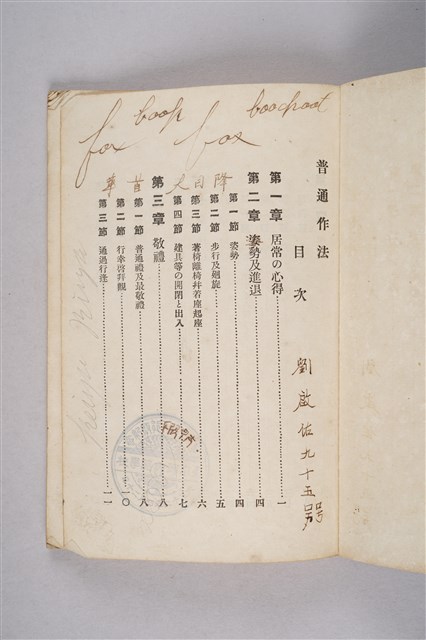 fox book fox boochoot
普通作法
目次
劉啟佑九十五號
第一章 居常の心得 一
第二章 姿勢及進退 四
第一節 姿勢 四
第二節 步行及廻旋 五
第三節 著椅離椅幷若座起座 六
第四節 建具等の開閉と出入 七
第三章 敬禮 八
第一節 普通禮及最敬禮 八
第二節 行幸啓拜觀 一〇
第三節 通過行逢 一一